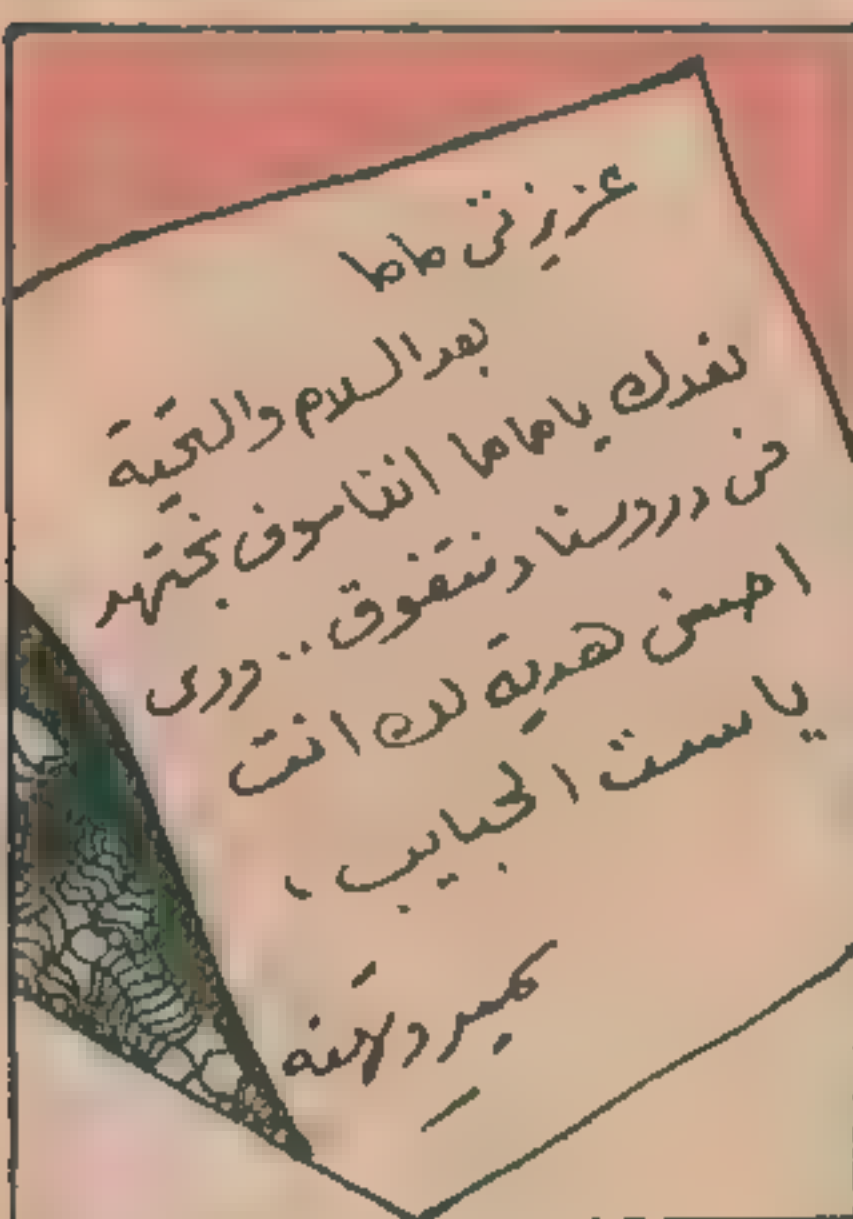 عزيزتى ماما
بعد السلام والتحية
نعدك ياماما اننا سوف نجتهد
فى دروسنا ونتفوق .. ودى
احسن هدية لك انت
ياست الحبايب ،
سمير وتهته